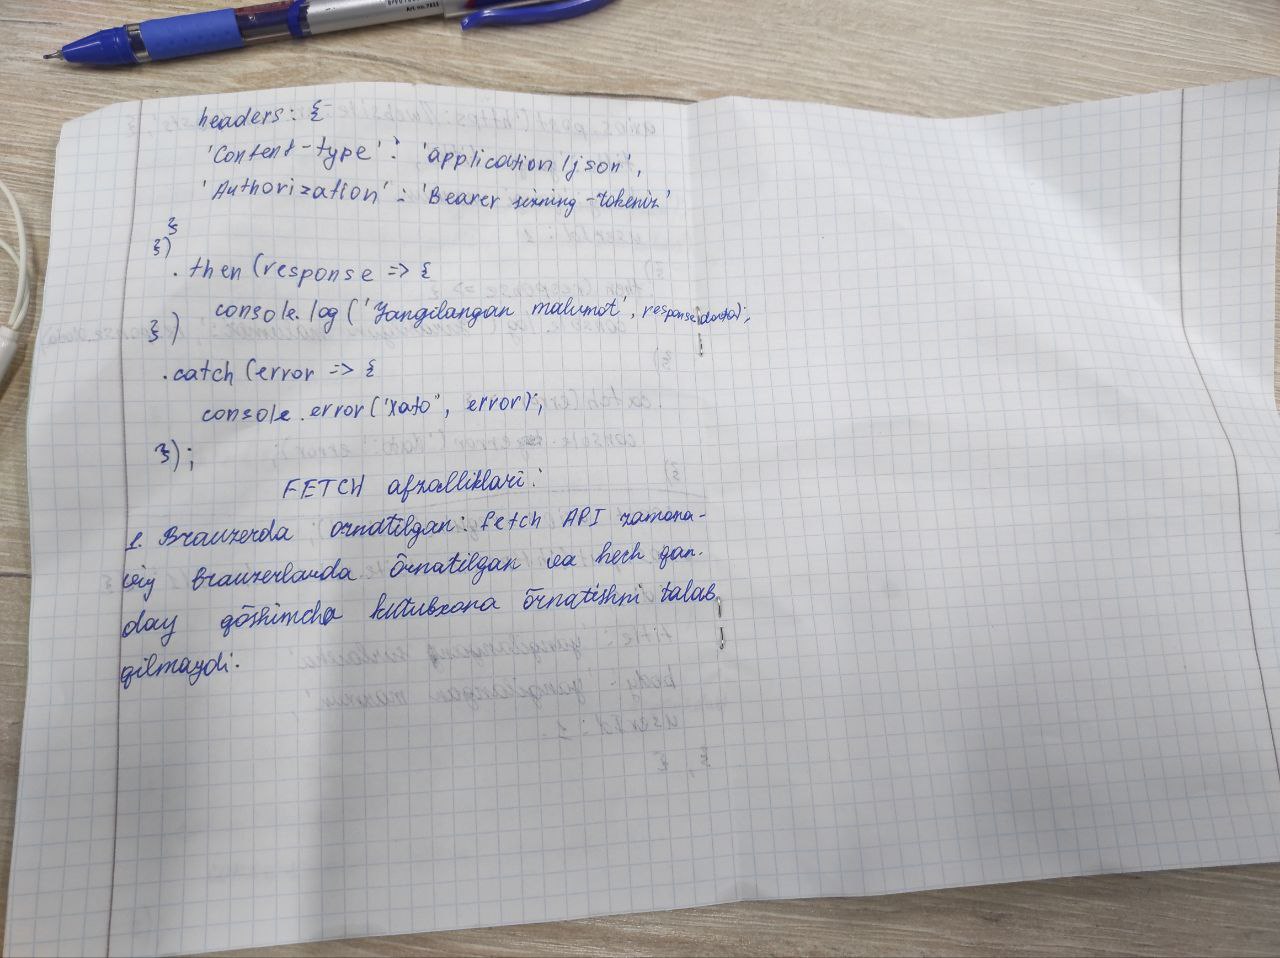 headers: {
'Content-type' : 'application/json',
'Authorization' : 'Bearer sizning-tokeniz'
}
})
.then (response => {
console.log ('Yangilangan malumot', response.data);
})
.catch (error => {
console.error ('Xato", error);
});
FETCH afzalliklari:
1. Brauzerda ornatilgan: fetch API zamona-
viy brauzerlarda õrnatilgan va hech qan-
day qõshimcha kutubxona õrnatishni talab
qilmaydi.